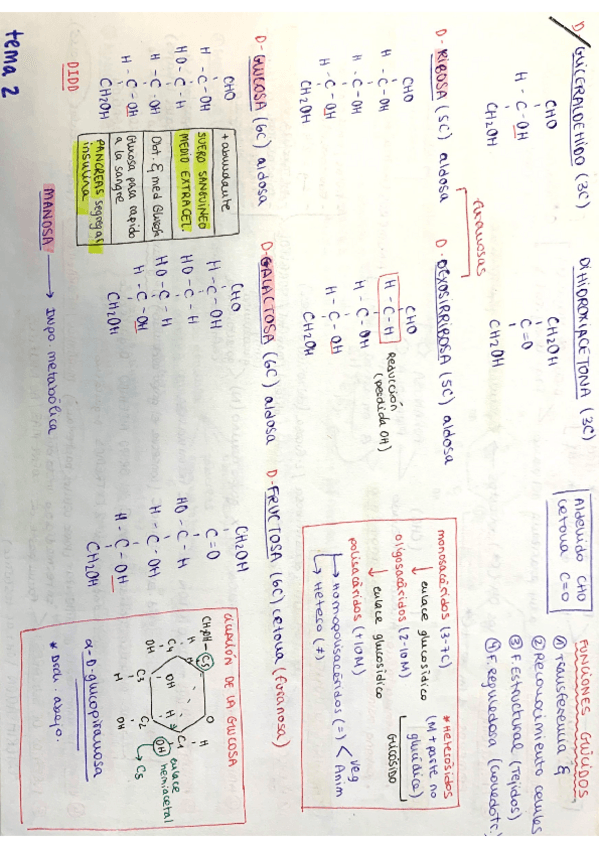 D GLICERALDEHIDO (3C)
CHO
H - C - OH
CH2OH
DIHIDROXIACETONA (3C)
CH2OH
C = O
CH2OH
Aldehido CHO
cetona C=O
FUNCIONES GLÚCIDOS
① Transferencia E
② Reconocimiento celular
③ F. estructural (tejidos)
④ F. reguladora
furanosas
D-RIBOSA (5C) aldosa
CHO
H - C - OH
H - C - OH
H - C - OH
CH2OH
D-DEXOSIRRIBOSA (5C) aldosa
CHO
H - C - H
H - C - OH
H - C - OH
CH2OH
REDUCCIÓN
(perdida OH)
monosacáridos (3-7C)
↓ enlace glucosídico
oligosacáridos (2-10M)
↓ enlace glucosídico
polisacáridos (+10M)
→ Homopolisacáridos (=) < veg
Anim
→ Hetero (≠)
* Heterósidos
(M + parte no
glucídica)
GLUCÓSIDO
D-GLUCOSA (6C) aldosa
CHO
H - C - OH
HO - C - H
H - C - OH
H - C - OH
CH2OH
DIDD
+ abundante
SUERO SANGUINEO
MEDIO EXTRACEL.
Obt. E med Glucosa
Glucosa pasa rapido
a la sangre
PANCREAS segrega
insulina
D-GALACTOSA (6C) aldosa
CHO
H - C - OH
HO - C - H
HO - C - H
H - C - OH
CH2OH
D-FRUCTOSA (6C) cetona (furanosa)
CH2OH
C = O
HO - C - H
H - C - OH
H - C - OH
CH2OH
CICLACIÓN DE LA GLUCOSA
CH2OH
C5
O
H
C4
OH
H
C1
OH
C3
H
C2
OH
enlace
hemiacetal
→ C5
α-D-glucopiranosa
MANOSA → Impo. metabólica
tema 2